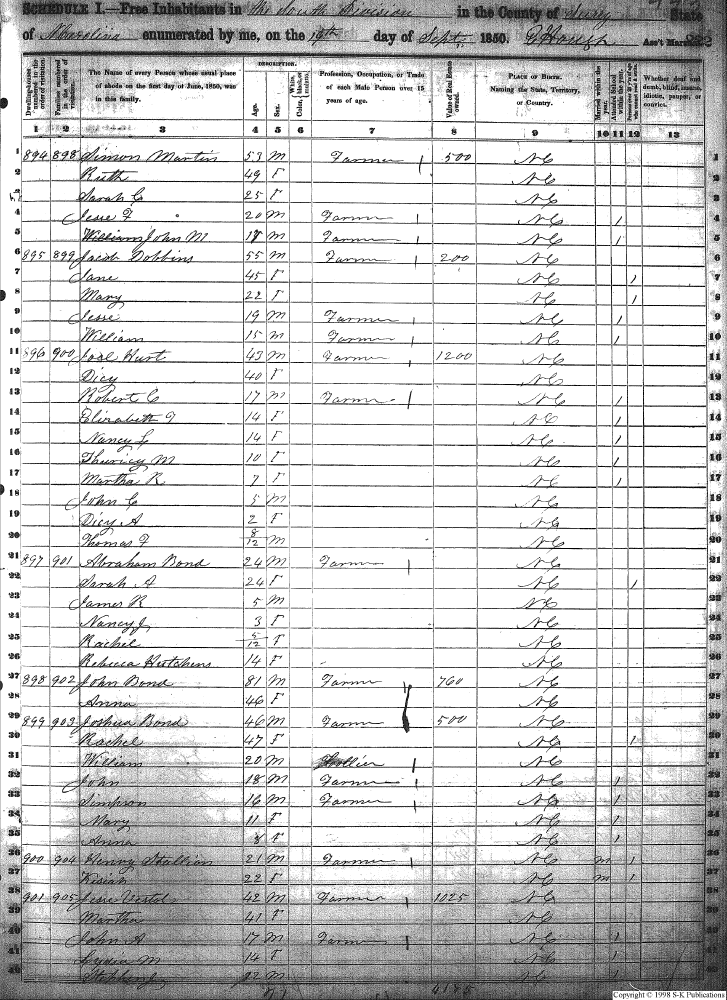 SCHEDULE I.—Free Inhabitants in the South Division in the County of Surry State
of N Carolina enumerated by me, on the day of Sept. 1850. Ass't Marshal
DESCRIPTION.
Dwelling-houses numbered in the order of visitation.
Families numbered in the order of visitation.
The Name of every Person whose usual place of abode on the first day of June, 1850, was in this family.
Age.
Sex.
Color, White, black, or mulatto.
Profession, Occupation, or Trade of each Male Person over 15 years of age.
Value of Real Estate owned.
PLACE OF BIRTH. Naming the State, Territory, or Country.
Married within the year.
Attended School within the year.
Whether deaf and dumb, blind, insane, idiotic, pauper, or convict.
1 2 3 4 5 6 7 8 9 10 11 12 13
1 894 898 Simon Martin 53 M Farmer 500 NC 1
2 Ruth 49 F NC 2
3 Sarah C 25 F NC 3
4 Jesse F 20 M Farmer NC / 4
5 William John M 18 M Farmer NC / 5
6 895 899 Jacob Dobbins 55 M Farmer 200 NC 6
7 Jane 45 F NC / 7
8 Mary 22 F NC / 8
9 Jesse 19 M Farmer NC / 9
10 William 15 M Farmer NC / 10
11 896 900 Joel Hurt 43 M Farmer 1200 NC 11
12 Dicy 40 F NC 12
13 Robert C 17 M Farmer NC / 13
14 Elizabeth 14 F NC / 14
15 Nancy L 14 F NC / 15
16 M 10 F NC / 16
17 Martha R 7 F NC / 17
18 John C 5 M NC 18
19 Dicy A 2 F NC 19
20 Thomas F 8/12 M NC 20
21 897 901 Abraham Bond 24 M Farmer NC 21
22 Sarah A 24 F NC / 22
23 James R 5 M NC 23
24 Nancy J 3 F NC 24
25 Rachel 5/12 F NC 25
26 Rebecca Hutchens 14 F NC 26
27 898 902 John Bond 81 M Farmer 760 NC 27
28 Anna 46 F NC 28
29 899 903 Joshua Bond 46 M Farmer 500 NC 29
30 Rachel 47 F NC / 30
31 William 20 M NC 31
32 John 18 M Farmer NC / 32
33 Simpson 16 M Farmer NC / 33
34 Mary 11 F NC / 34
35 Anna 8 F NC / 35
36 900 904 Henry Stallian 21 M Farmer NC m / 36
37 Kisiah 22 F NC m / 37
38 901 905 Jesse Vestal 42 M Farmer 1025 NC 38
39 Martha 41 F NC 39
40 John A 17 M Farmer NC / 40
41 Lydia M 14 F NC / 41
42 Stephen 12 M NC / 42
4185
Copyright © 1998 S-K Publications